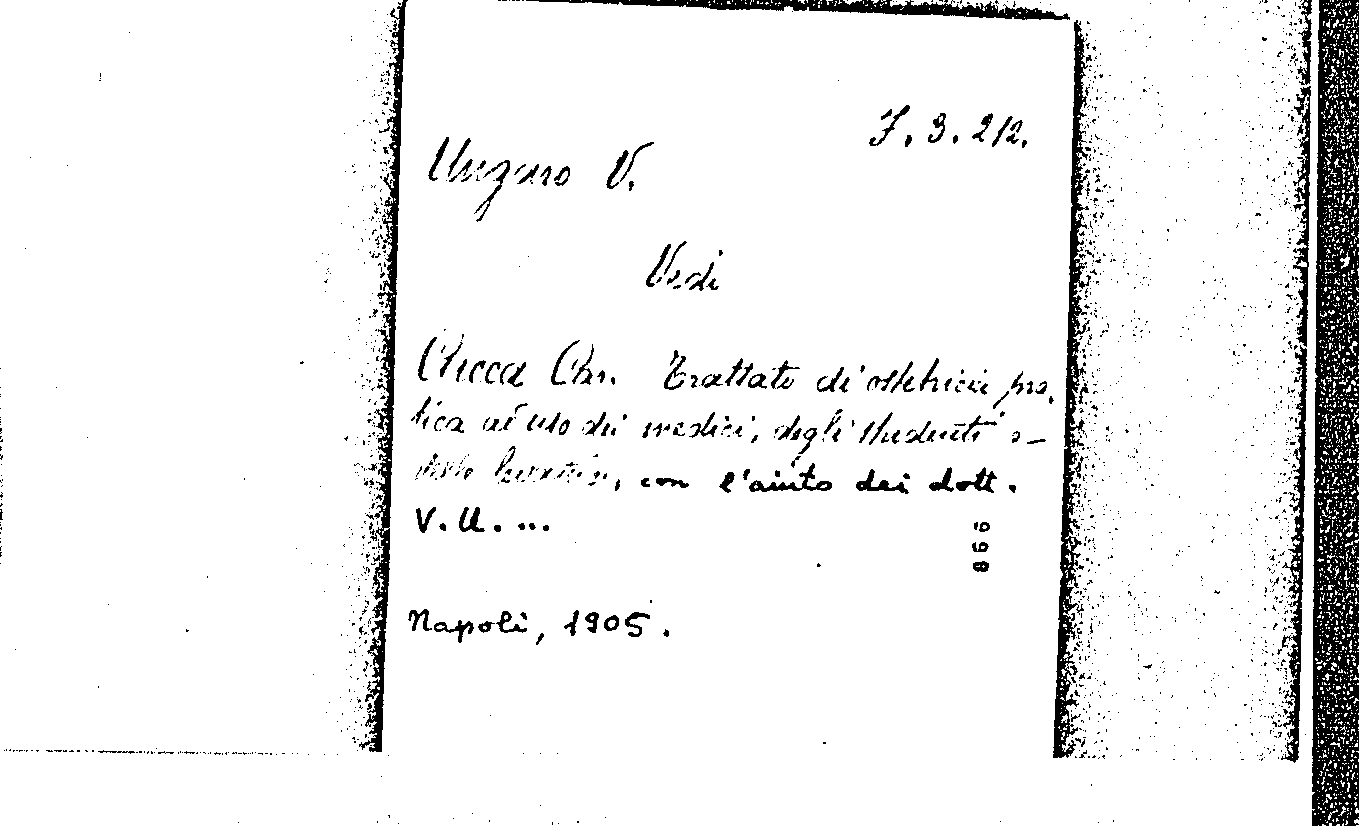 7. 3. 212.
Ungaro V.
Vedi
Cucca Car. Trattato di ostetricia pra-
tica ad uso dei medici, degli studenti e
delle levatrici, con l'aiuto dei dott.
V. U. ...
866
Napoli, 1905.